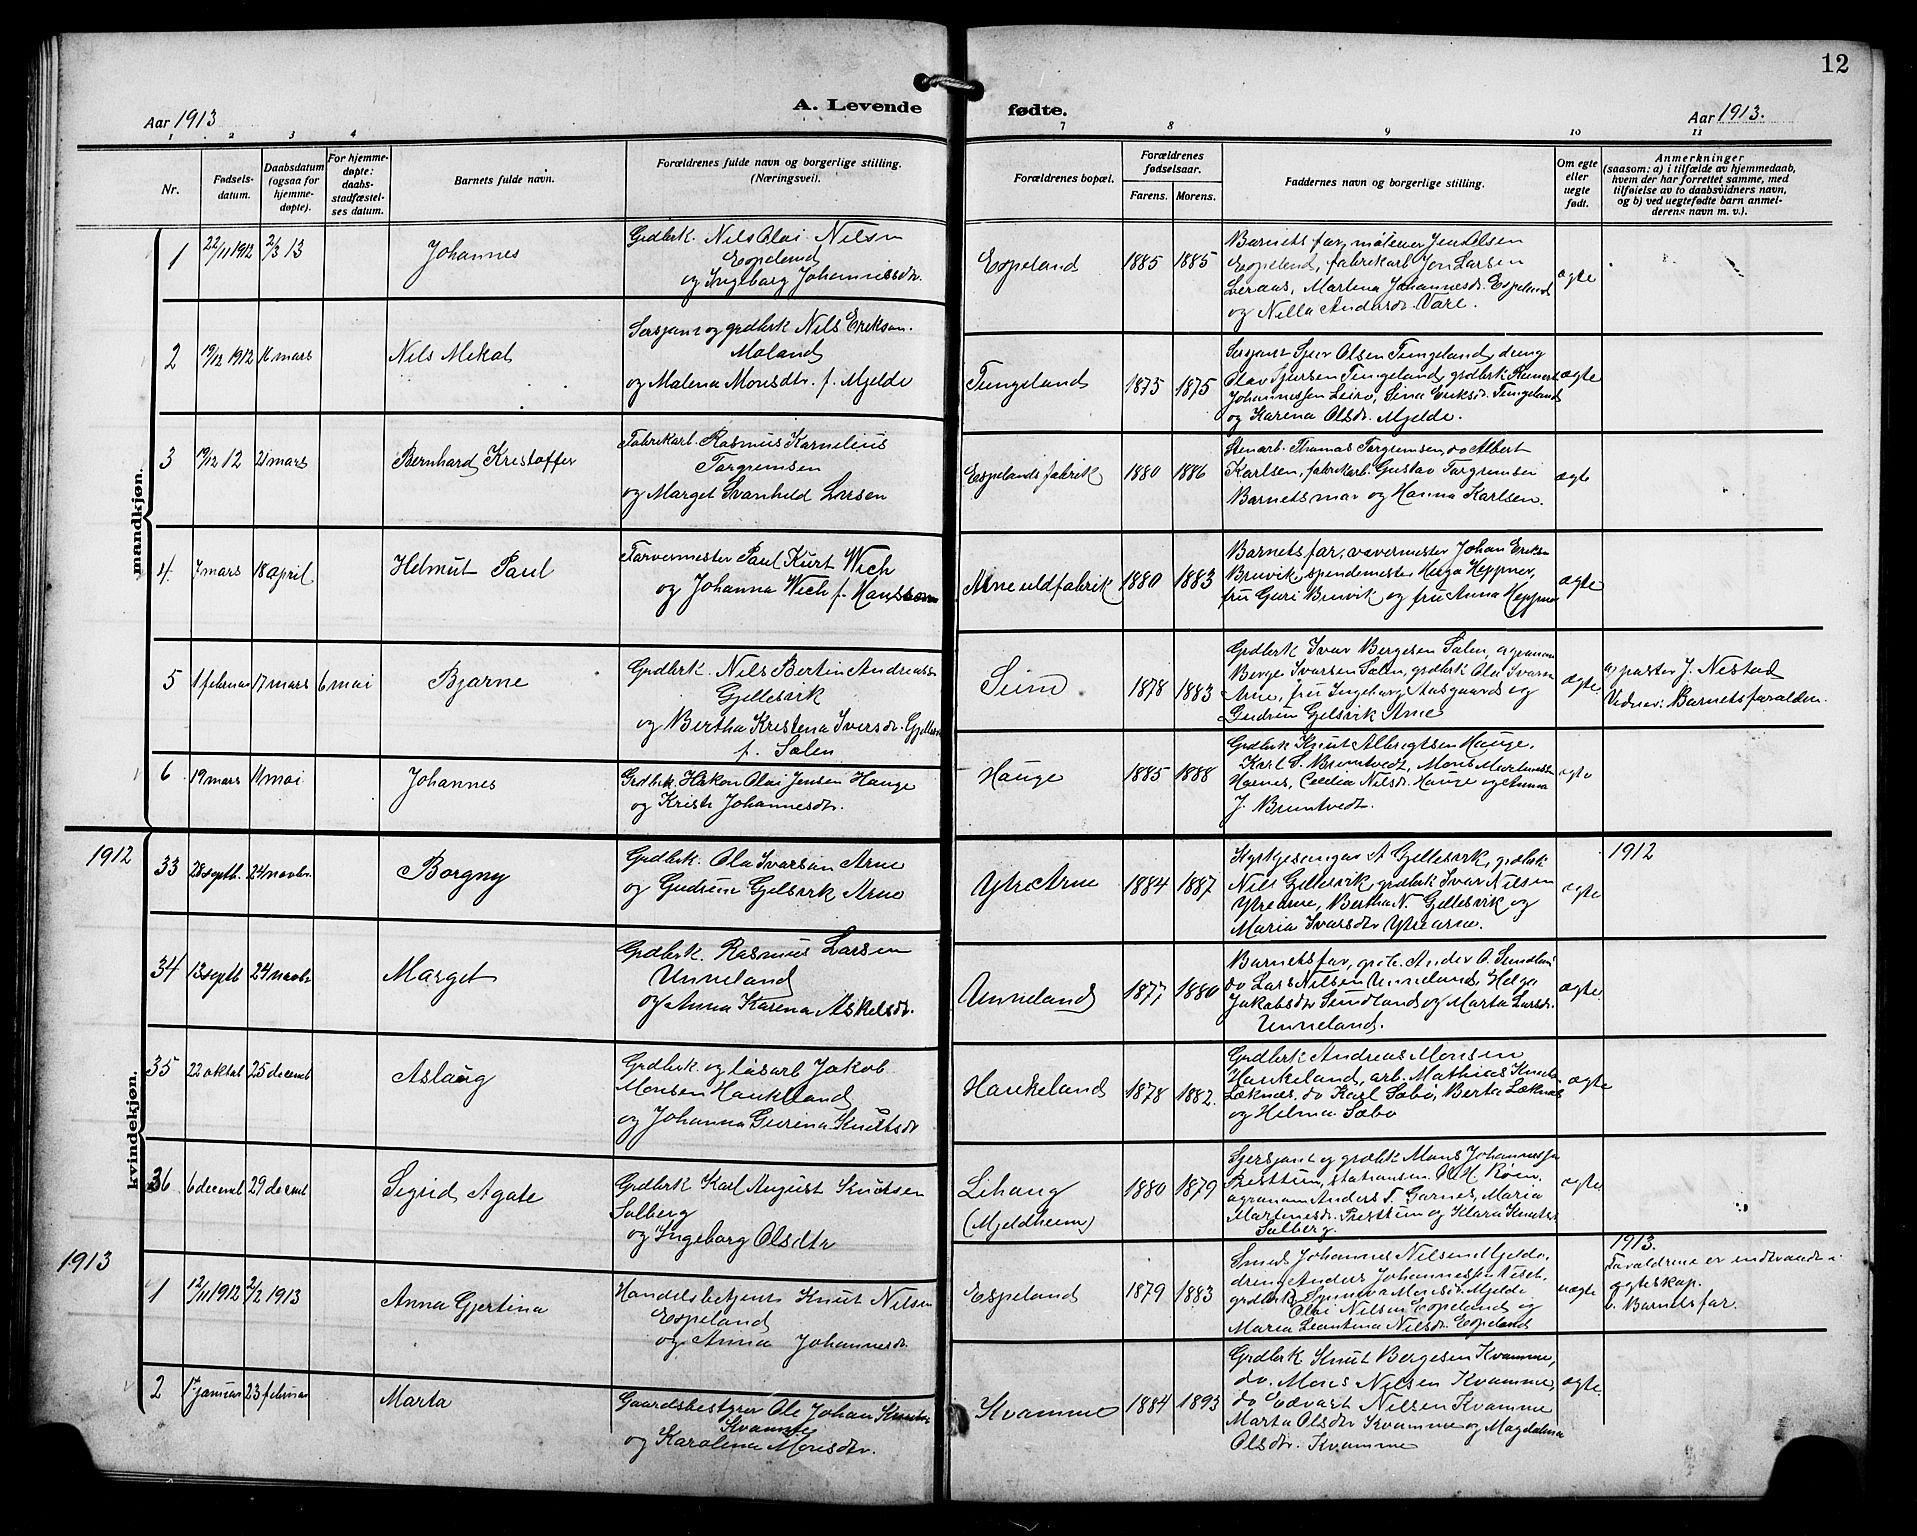 12
A. Levende fødte.
Aar 1913
Aar 1913.
1 2 3 4 7 8 9 10 11
Nr.
Fødsels-
datum.
Daabsdatum
(ogsaa for
hjemme-
døpte).
For hjemme-
døpte:
daabs-
stadfæstel-
ses datum.
Barnets fulde navn.
Forældrenes fulde navn og borgerlige stilling.
(Næringsvei).
Forældrenes bopæl.
Forældrenes
fødselsaar.
Farens. Morens.
Faddernes navn og borgerlige stilling.
Om egte
eller
uegte
født.
Anmerkninger
(saasom: a) i tilfælde av hjemmedaab,
hvem der har forrettet samme, med
tilføielse av to daabsvidners navn,
og b) ved uegtefødte barn anmel-
derens navn m. v.).
mandkjøn.
1 22/11 1912 2/3 13 Johannes
Grdbrk. Nils Olai Nilsen
Espeland
og Ingeborg Johannesdr.
Espeland 1885 1885
Barnets far, mølener Jon Olsen
Espeland, fabrikarb Jon Larsen
Leraas, Martena Johannesdr. Espeland
og Nilla Andersdr. Vare.
ægte
2 19/12 1912 16 mars Nils Mikal
Sersjant og grdbrk Nils Erikson
Moland
og Malena Monsdtr. f. Mjelde
Tungeland 1873 1875
Sersjant Sjur Olsen Tungeland, dreng
Olav Sjursen Tungeland, grdbrk Reinert
Johannessen Leiro, Sina Eriksdr. Tungeland
og Karina Olsdr. Mjelde.
ægte
3 19/12 12 21 mars Bernhard Kristoffer
Fabrikarb. Rasmus Kornelius
Torgrimsen
og Marget Svanhild Larsen
Espelands fabrik 1880 1886
Stenarb. Thomas Torgrimsen, do Albert
Karlsen, fabrikarb. Gustav Torgrimsen
Barnets mor og Hanna Karlsen.
ægte
4. 7 mars 18 april Helmut Paul
Farvermester Paul Kurt Wich
og Johanna Wich f. Hansson
Arne uldfabrik 1880 1883
Barnets far, vævermester Johan Eriksen
Bruvik, spindemester Helge Heppner,
fru Guri Bruvik og fru Anna Heppner
ægte
5 1 februar 17 mars 6 mai Bjarne
Grdbrk. Nils Bertin Andreassen
Gjellesvik
og Bertha Kristina Iversdr. Gjellesvik
f. Sælen
Seim 1878 1883
Grdbrk Ivar Bergesen Sælen, agronom
Berge Ivarsen Sælen, grdbrk Ola Ivarsen
Arne, fru Ingeborg Aasgaard og
Gudrun Gjelsvik Arne
ægte
a) pastor J. Nestad
Vidner: Barnets foraldre.
6 19 mars 11 mai Johannes
Grdbrk. Hakon Olai Jensen Hauge
og Kristi Johannesdr.
Hauge 1885 1888
Grdbrk Knut Albrigtsen Hauge,
Karl S. Bruntvedt, Mons Martinussen
Haenes, Cecilia Nilsdr. Hauge og Anna
J. Bruntvedt.
ægte
kvindekjøn.
1912
33 28 septb. 24 novbr. Borgny
Grdbrk. Ola Ivarsen Arne
og Gudrun Gjelsvik Arne
Ytre Arne 1884 1887
Kyrkjesongar A Gjellesvik, grdbrk
Nils Gjellesvik, grdbrk Ivar Nilsen
Ytrearne, Bertha N. Gjellesvik og
Maria Ivarsdr Ytrearne.
ægte
1912
34 13 septb 24 novbr Marget
Grdbrk. Rasmus Larsen
Unneland
og Anna Karina Askelsdr.
Unneland 1877 1880
Barnets far, Ander O. Sundland
do Lars Nilsen Unneland, Helga
Jakobsdr Sundland og Marta Larsdr.
Unneland.
ægte
35 22 oktob 25 decemb Aslaug
Grdbrk og løsarb Jakob
Monsen Haukeland
og Johanna Gurina Knutsdr
Haukeland 1878 1882.
Grdbrk Andreas Monsen
Haukeland, arb. Mathias Knuts.
Læknæs, do Karl Sæbø, Berta Læknæs
og Helma Sæbø
ægte
36 6 decemb 29 decemb Sigrid Agate
Grdbrk Karl August Knutsen
Solberg
og Ingeborg Olsdtr
Lihaug
(Mjeldheim)
1880 1879
Sersjant og grdbrk Mons Johannessen
Presttun, H Røen,
agronom Anders T. Garnes, Maria
Martinesdr. Presttun og Klara Knutsdr
Solberg.
ægte
1913
1 12/11 1912 2/2 1913 Anna Gjertina
Handelsbetjent Knut Nilsen
Espeland
og Anna Johannesdr.
Espeland 1879 1883
Smed Johannes Nilsen Mjelde,
dreng Anders Johannessen
grdbrk Monsdr. Mjelde
Olai Nilsen Espeland og
Maria Leantina Nilsdr. Espeland
uægte
1913.
Foraldrene er indtraadt i
ægteskap.
b. Barnets far.
2 1 januar 23 februar Marta
Gaardsbestyrer Ole Johan Knutsen
Kvamme
og Karolina Monsdtr.
Kvamme 1884 1893
Grdbrk Knut Bergesen Kvamme,
do. Mons Nilsen Kvamme,
do Edvart Nilsen Kvamme
Marta Olsdtr Kvamme og Magdalena
Olsdtr. Kvamme
ægte.